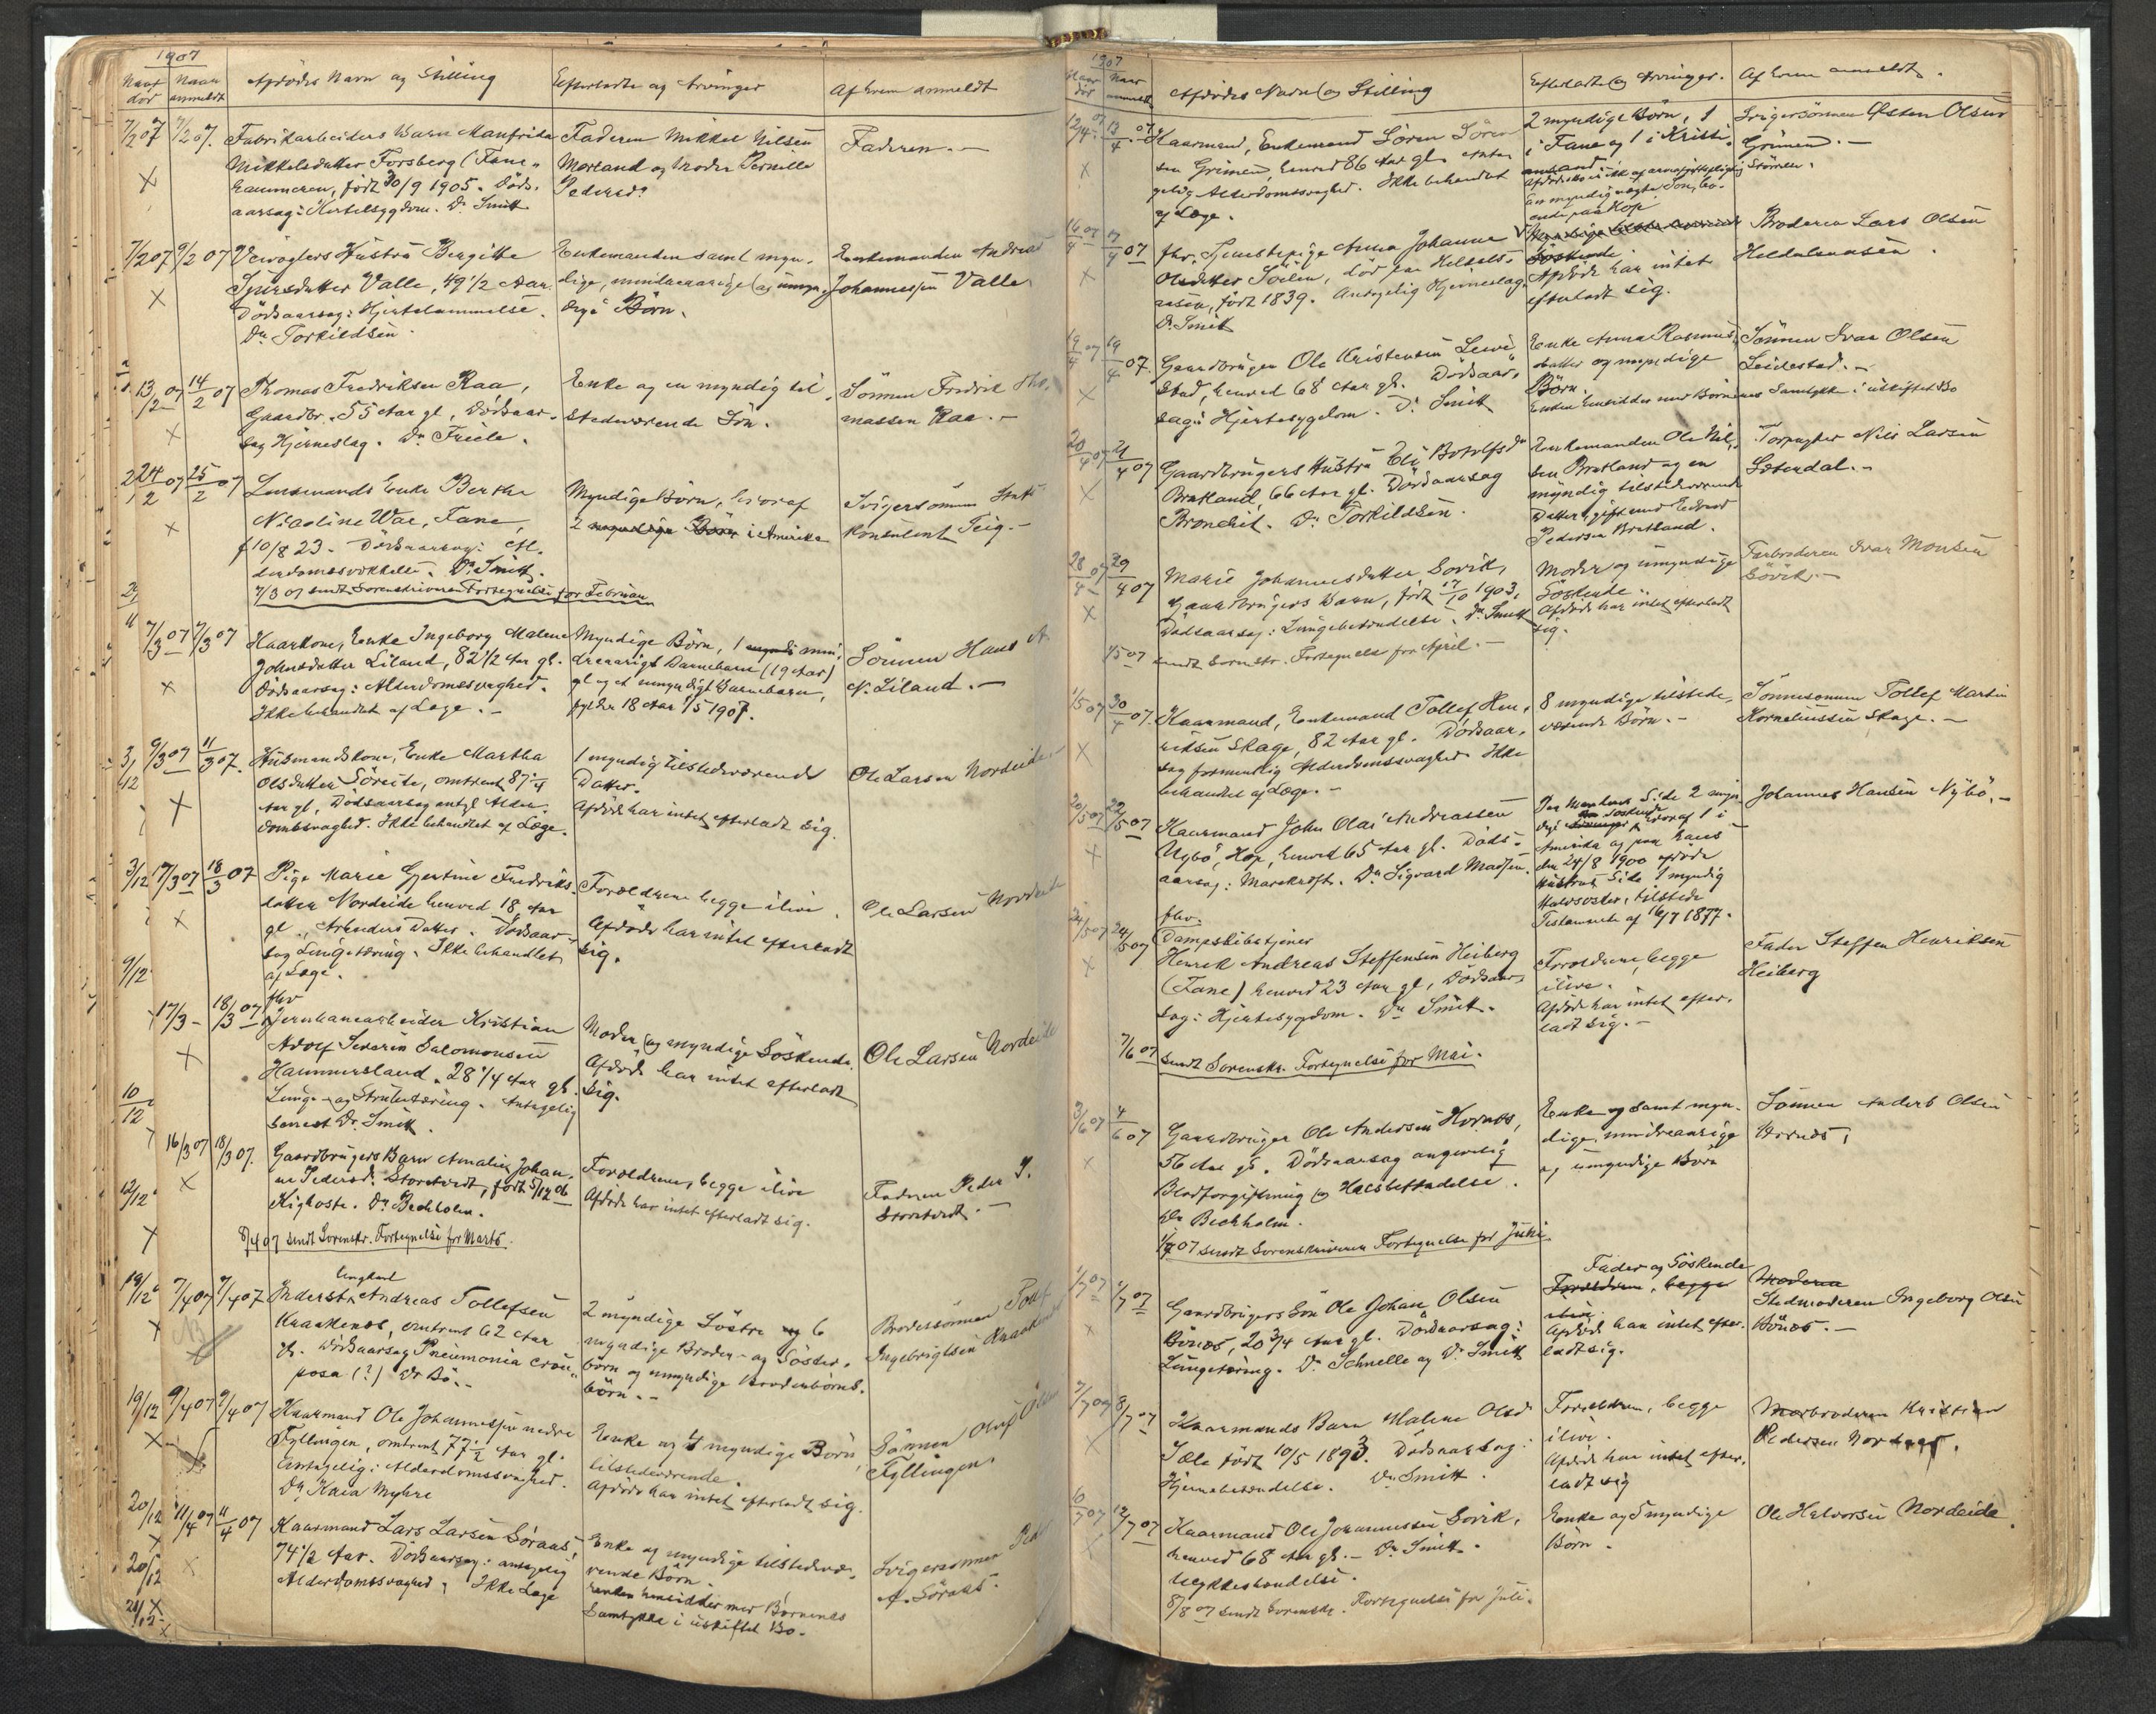 1907
Naar død Naar anmeldt Afdødes Navn og Stilling Efterladte og Arvinger Af hvem anmeldt
7/2 07 7/2 07. Fabrikarbeiders Barn Manfrida Faderen Mikkel Nilsen Faderen. –
Mikkelsdatter Forsberg (Fane „ Morland og Moder Pernille
hammeren, født 30/9 1905. Døds. Pedersd.
aarsag: Kirtelsygdom. Dr. Smitt
7/2 07 9/2 07 Veivogters Hustru Birgitte Enkemanden samt myn. Enkemanden Andreas
Sjursdatter Valle, 49 1/2 Aar. dige, mindreaarige og umyn. Johannessen Valle
Dødsaarsag: Hjertelammelse. dige Børn.
Dr. Torkildsen.
13/2 07 14/2 07 Thomas Fredriksen Raa, Enke og en myndig til Sønnen Fredrik Tho.
Gaardbr. 55 Aar gl, Dødsaar. stedeværende Søn. massen Raa. –
sag Hjerneslag. Dr. Friele.
24/2 07 25/2 07 Lensmands Enke Berthe Myndige Børn, hvoraf Svigersønnen
Nicoline Wae, Fane, 2 myndige Børn i Amerika Konsulent Teig. –
f 10/8 23. Dødsaarsag: Al.
derdomssvækkelse. Dr. Smitt.
7/3 07 sendt Sorenskriveren Fortegnelse for Februar
7/3 07 7/3 07 Kaarkone, Enke Ingeborg Malene Myndige Børn, 1 min.
Johnsdatter Liland, 82 1/2 Aar gl. dreaarigt Barnebarn (19 Aar) Sønnen Hans A
Dødsaarsag: Alderdomssvaghed. gl og et umyndigt Barnebarn, N. Liland. –
Ikke behandlet af Læge. – fylder 18 Aar 1/5 1907.
9/3 07 11/3 07. Husmandskone, Enke Martha 1 myndig tilstedeværende Ole Larsen Nordeide. –
Olsdatter Søreide, omtrent 87 1/4 Datter.
Aar gl, Dødsaarsag antgl Alder. Afdøde har intet efterladt sig.
domssvaghed. Ikke behandlet af Læge.
17/3 07 18/3 07 Pige Marie Gjertine Fredriks. Forældrene begge ilive. Ole Larsen Nordeide
datter Nordeide henved 18 Aar Afdøde har intet efterladt
gl., Arbeiders Datter. Dødsaar. sig.
sag Lungetæring. Ikke behandlet
af Læge.
fhv
17/3 – 18/3 07 Jernbanearbeider Kristian Moder og myndige Søskende. Ole Larsen Nordeide
Adolf Severin Salomonsen Afdøde har intet efterladt
Hammersland. 28 1/4 Aar gl. sig.
Lunge- og Strubetæring. Antagelig
senest Dr. Smitt.
16/3 07 18/3 07. Gaardbrugers Barn Amalie Johan. Forældrene, begge ilive Faderen Peder J.
ne Pedersd. Storetvedt, født 5/12 06 Afdøde har intet efterladt sig. Storetvedt. –
Kighoste. Dr. Bechholm.
8/4 07 sendt Sorenskr. Fortegnelse for Marts.
Ungkarl
7/4 07 7/4 07 Inderst Andreas Tollefsen 2 myndige Søstre og 6 Brodersønnen
Kraakenes, omtrent 62 Aar myndige Broder- og Søster. Ingebrigtsen Kraakenes
gl. Dødsaarsag Pneumonia crou„ børn og umyndige Broderbørns.
posa (?) Dr. Bø. – børn. –
9/4 07 9/4 07 Kaarmand Ole Johannessen nedre Enke og 4 myndige Børn, Sønnen Oluf Olsen
Fyllingen, omtrent 77 1/2 Aar gl. tilstedeværende. Fyllingen.
Antagelig: Alderdomssvaghed. Afdøde har intet efterladt sig.
Dr. Kaia Myhre
11/4 07 11/4 07 Kaarmand Lars Larsen Søraas, Enke og myndige tilstedevæ. Svigersønnen
74 1/2 Aar. Dødsaarsag: antagelig rende Børn. A. Søraas.
Alderdomssvaghed. Ikke Læge Enken hensidder med Børnenes
Samtykke i uskiftet Bo.
1907
Naar død Naar anmeldt Afdødes Navn og Stilling Efterladte og Arvinger. Af hvem anmeldt.
12/4 07 13/4 07 Kaarmand, Enkemand Søren Søren 2 myndige Børn, 1 Svigersønnen Østen Olsen
sen Grimen, henved 86 Aar gl. Anta i Fane og 1 i Kristi. Grimen. –
gelig Alderdomssvaghed. Ikke behandlet
af Læge.
16/4 07 17/4 07 fhv. Tjenestepige Anna Johanne Søskende Broderen Lars Olsen
Olsdatter Søilen, død paa Heldals Afdøde har intet Heldalsaasen.
aasen, født 1839. Antagelig Hjerneslag. efterladt sig.
Dr. Smitt
19/4 07 19/4 07. Gaardbruger Ole Kristensen Leire Enke Anna Rasmus. Sønnen Ivar Olsen
stad, henved 68 Aar gl. Dødsaar. datter og myndige Leirestad. –
sag: Hjertesygdom. Dr. Smitt Børn.
Enken hensidder med Børnenes Samtykke i uskiftet Bo
20/4 07 21/4 07 Gaardbrugers Hustru Eli Botolfsdr Enkemanden Ole Nil, Torpagter Nils Larsen
Bratland, 66 Aar gl. Dødsaarsag sen Bratland og en Sæterdal. –
Bronchit. Dr. Torkildsen. myndig tilstedeværende
Datter, gift med Edvard
Pedersen Bratland.
28/4 07 29/4 07 Marie Johannesdatter Søvik, Moder og umyndige Farbroderen Ivar Monsen
Gaardbrugers Barn, født 17/10 1903. Søskende. Søvik. –
Dødsaarsag: Lungebetændelse. Dr. Smitt Afdøde har intet efterladt
sig.
1/5 07 sendt Sorenskr. Fortegnelse for April. –
1/5 07 30/4 07. Kaarmand, Enkemand Tollef Hen, 8 myndige tilstede, Sønnesønnen Tollef Martin
riksen Skage, 82 Aar gl. Dødsaar, værende Børn. – Korneliussen Skage. –
sag formentlig Alderdomssvaghed. Ikke
behandlet af Læge. –
20/5 07 22/5 07 Kaarmand John Olai Andreassen Paa Mandens Side 2 myn. Johannes Hansen Nybø. –
Nybø, Hop, henved 65 Aar gl. Døds. dige Søskende, hvoraf 1 i
aarsag: Mavekræft. Dr. Sigvard Madsen. Amerika og paa hans
den 24/8 1900 afdøde
Hustrus Side 1 myndig
Halvsøster, tilstede
Testamente af 16/7 1877.
fhv.
24/5 07 24/5 07 Dampskibstjener
Henrik Andreas Steffensen Heiberg Forældrene, begge Fader Steffen Henriksen
(Fane) henved 23 Aar gl, Dødsaar, ilive. Heiberg
sag: Hjertesygdom. Dr. Smitt. Afdøde har intet efter.
ladt sig. –
7/6 07 sendt Sorenskr. Fortegnelse for Mai.
3/6 07 4/6 07 Gaardbruger Ole Andersen Hornes, Enke og samt myn. Sønnen Anders Olsen
56 Aar gl. Dødsaarsag angivelig dige, mindreaarige Hornes,
Blodforgiftning og Halsbetændelse. og umyndige Børn
Dr. Bechholm.
1/7 07 sendt Sorenskriveren Fortegnelse for Juni.
Fader og Søskende
1/7 07 1/7 07 Gaardbrugers Søn Ole Johan Olsen Forældrene, begge Moderen
Bønes, 20 3/4 Aar gl. Dødsaarsag: ilive. Stedmoderen Ingeborg Olsen
Lungetæring. Dr. Schnelle og Dr. Smitt Afdøde har intet efter. Bønes. –
ladt sig.
7/7 07 8/7 07 Kaarmands Barn Malene Olsd. Forældrene, begge Morbroderen Kristian
født 10/5 1893. Dødsaarsag: ilive. Pedersen
Hjernebetændelse. Dr. Smitt. Afdøde har intet efter.
ladt sig
10/7 07 12/7 07 Kaarmand Ole Johannessen Søvik, Enke og 5 myndige Ole Halvorsen Nordeide.
henved 68 Aar gl. – Dr. Smitt. Børn.
Ulykkeshændelse.
8/8 07 sendt Sorenskr. Fortegnelse for Juli.